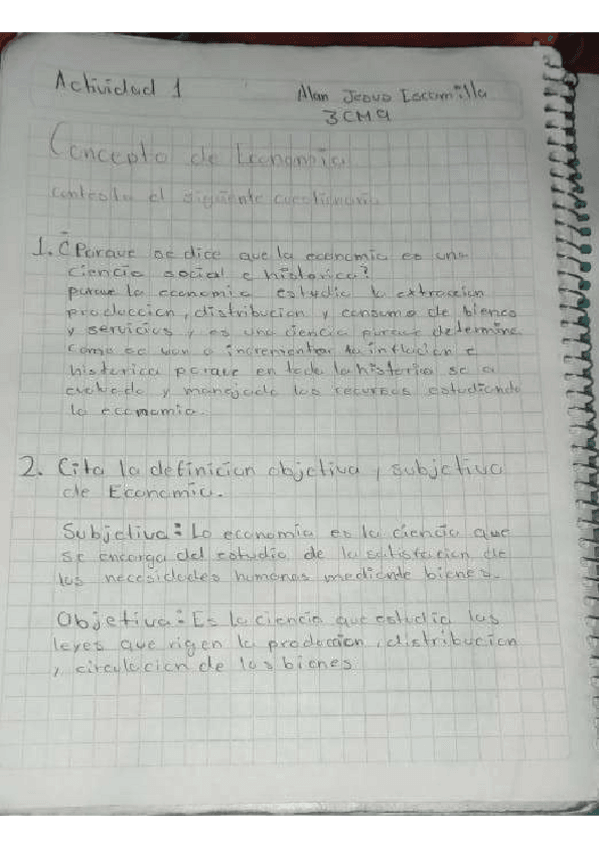 Actividad 1
Alan Jesus Escamilla
3CM9
Concepto de Economia
contesta el siguiente cuestionario
1. ¿Porque se dice que la economia es una
ciencia social e historica?
porque la economia estudia la extraccion
produccion, distribucion y consumo de bienes
y servicios y es una ciencia porque determina
como se van a incrementar la inflacion e
historica porque en toda la historia se a
y manejado los recursos estudiando
la economia.
2. Cita la definicion objetiva y subjetiva
de Economia.
Subjetiva: La economia es la ciencia que
se encarga del estudio de la satisfacion de
las necesidades humanas mediante bienes.
Objetiva: Es la ciencia que estudia las
leyes que rigen la produccion, distribucion
y circulacion de los bienes